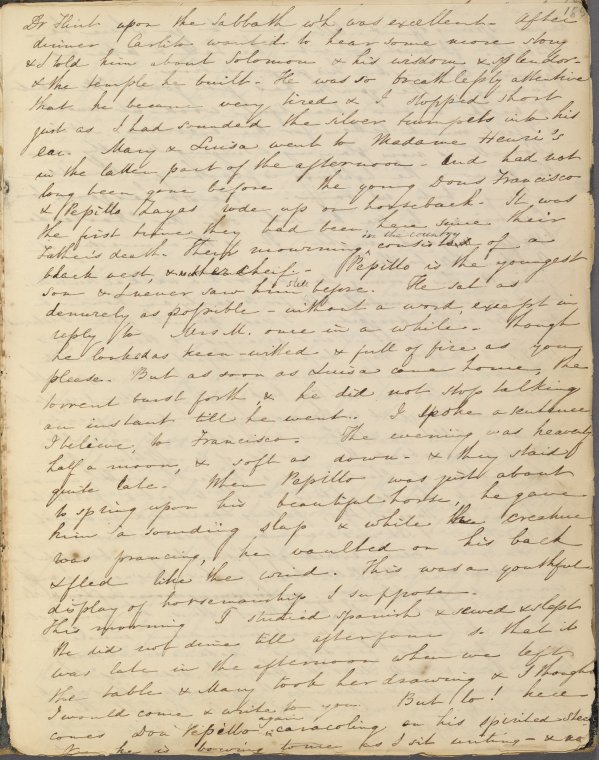 Dr Flint upon the Sabbath wh was excellent. After
dinner Carlito wanted to hear some more story
& I told him about Solomon & his wisdom & splendor -
& the temple he built. He was so breathlessly attentive
that he became very tired & I stopped short
just as I had sounded the silver trumpets into his
ear. Mary & Luisa went to Madame Henri's
in the latter part of the afternoon - and had not
long been gone before the young Dons Francisco
& Pepillo Layas rode up on horseback. It was
the first time they had been here since their
Father's death. Their mourning in the country consisted of a
black vest, & neckerchief. Pepillo is the youngest
son & I never saw him still before. He sat as
demurely as possible - without a word, except in
reply to Mrs M. once in a while - though
he looked as keen-witted & full of fire as you
please. But as soon as Luisa came home, the
torrent burst forth & he did not stop talking
an instant till he went. I spoke a sentence
I believe, to Francisco. The evening was heavenly
half a moon, & soft as down - & they staid
quite late. When Pepillo was just about
to spring upon his beautiful horse, he gave
him a sounding slap & while the creature
was prancing, he vaulted on his back
& fled like the wind. This was a youthful
display of horsemanship I suppose.
This morning I studied Spanish & sewed & slept
We did not dine till after four so that it
was late in the afternoon when we left
the table & Mary took her drawing & I thought
I would come & write to you. But lo! here
comes Don Pepillo again caracoling on his spirited steed
he is bowing to me as I sit writing - & no